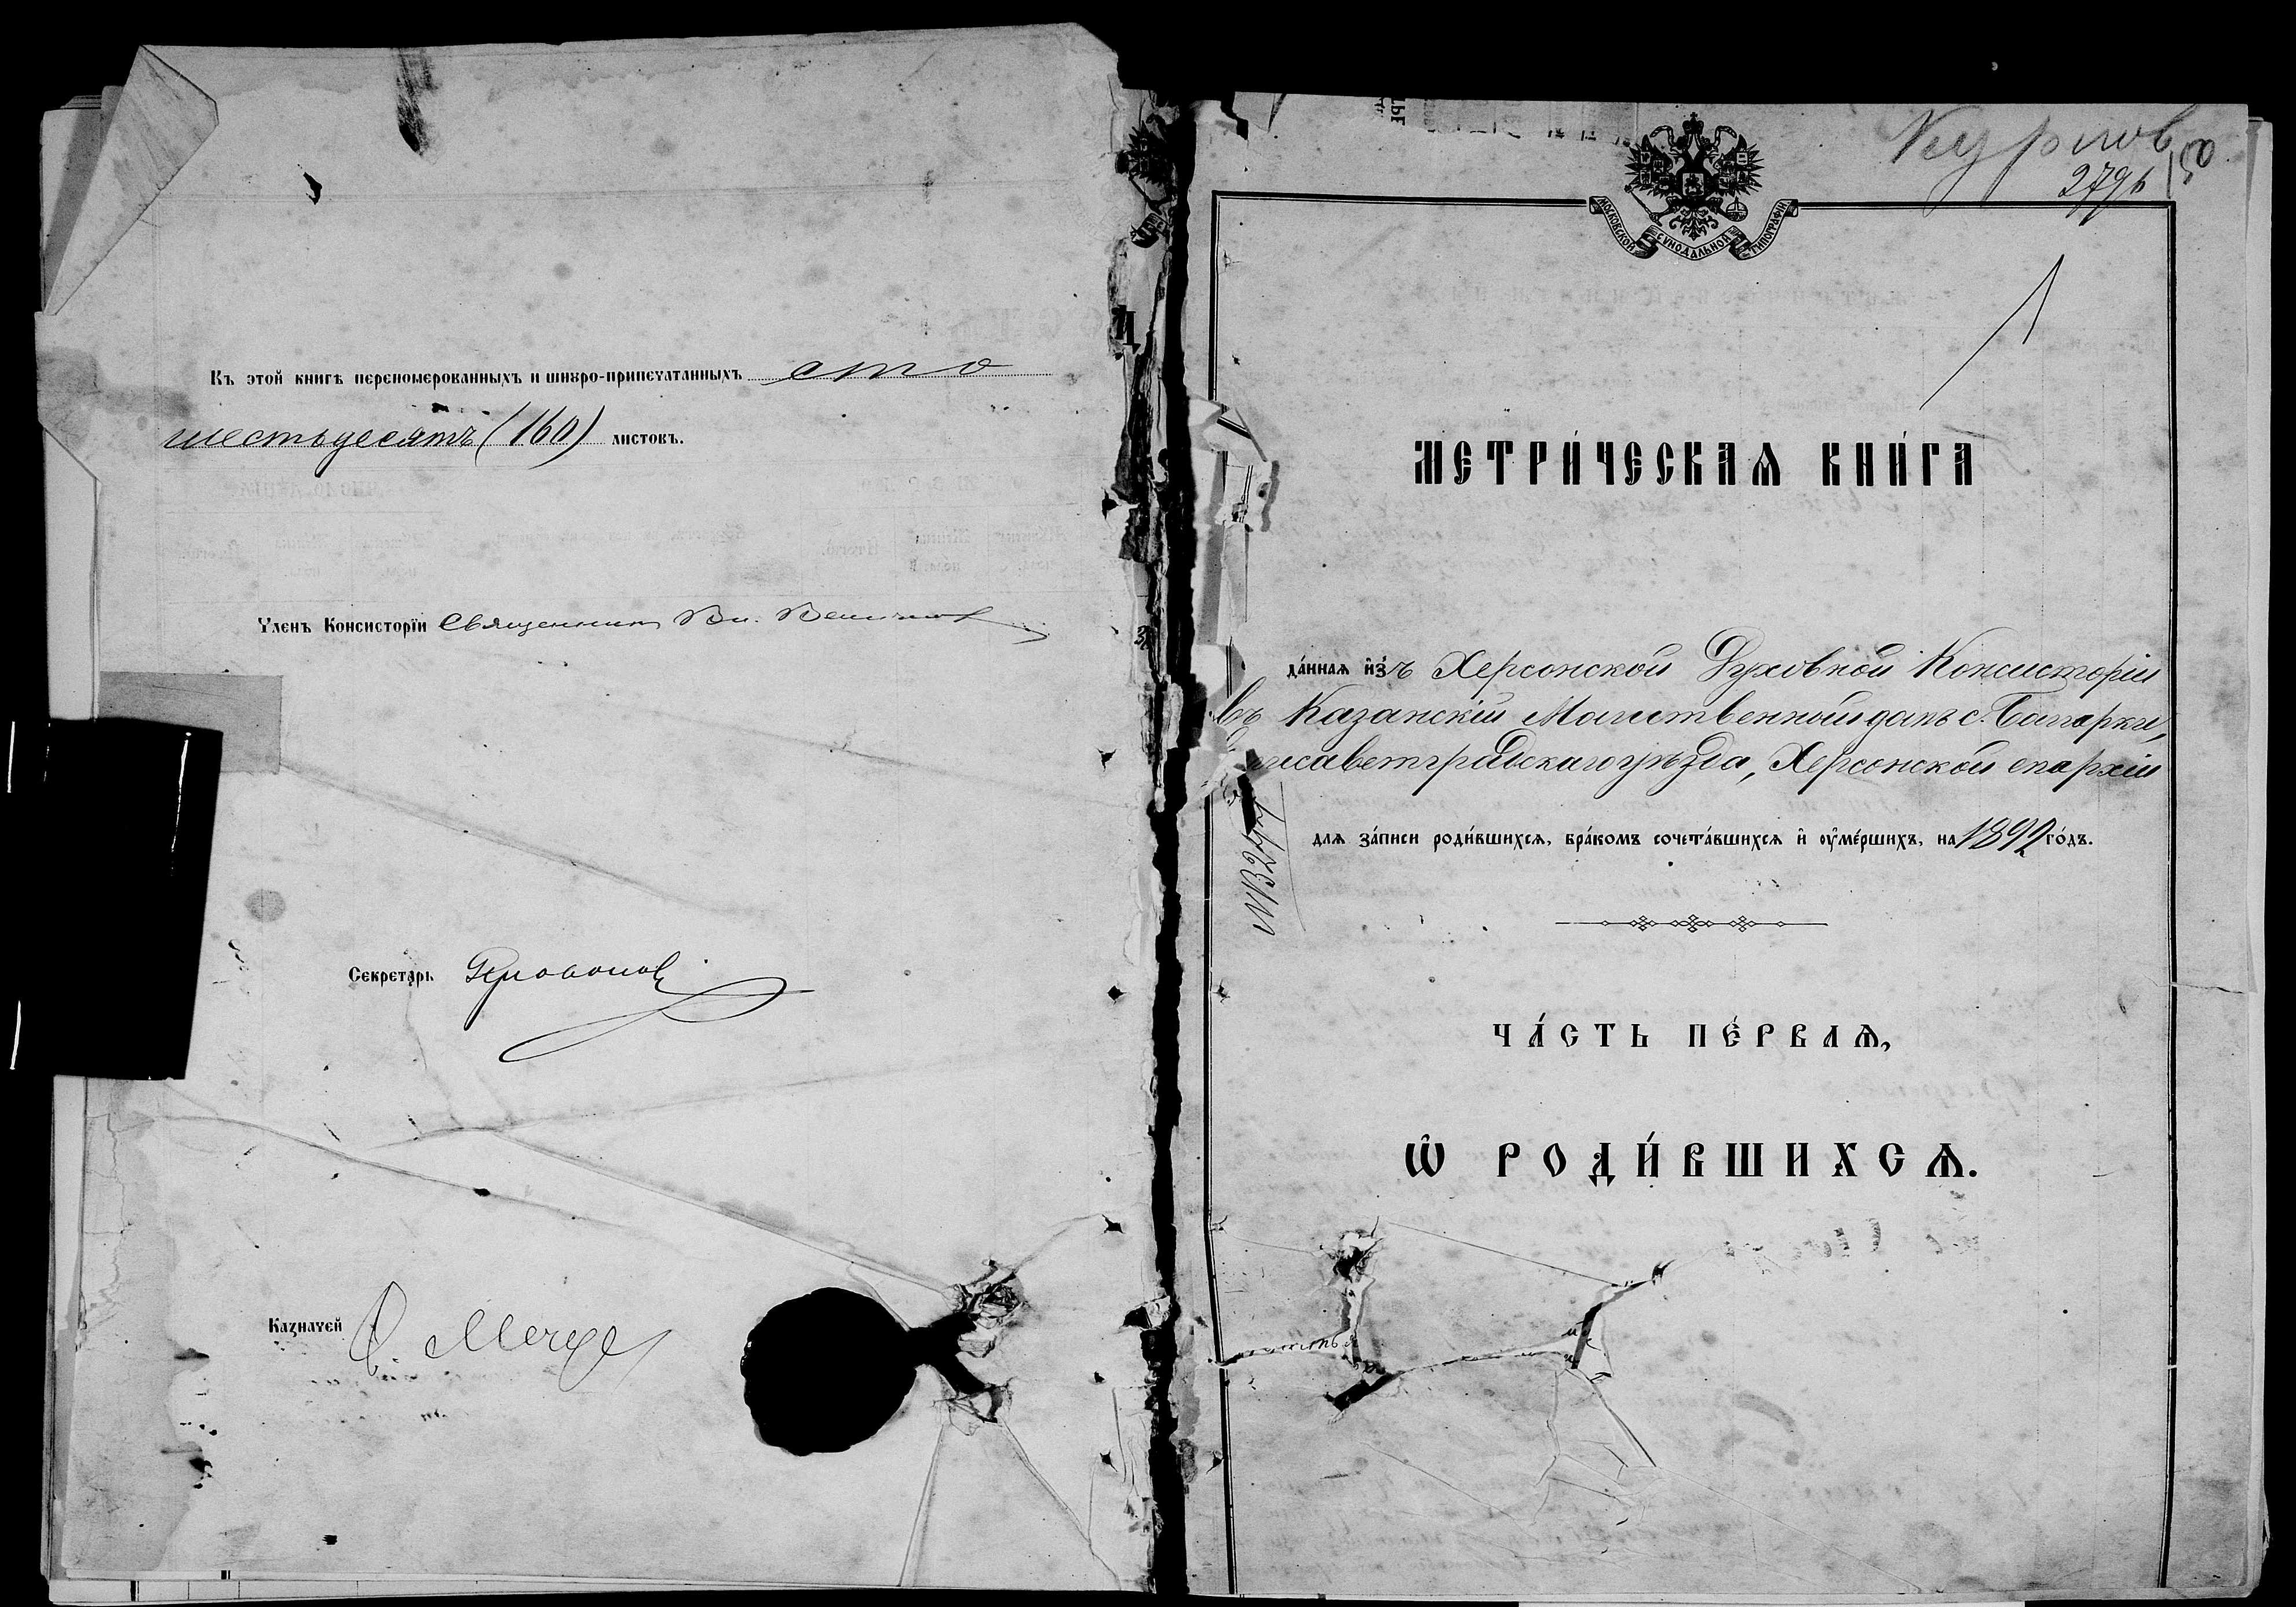 Къ этой книгѣ перепомерованныхъ и шнуро-припечатанныхъ сто
шестьдесятъ (160) листовъ.
Членъ Консисторїи Священникъ Вл.
Секретарь
Казначей
МОСКОВСКОЙ СѴНОДАЛЬНОЙ ТИПОГРАФІИ
279
150
МЕТРИ́ЧЕСКАѦ КНИ́ГА
да́ннаѧ и҆з̾ъ Херсонской Духовной Консисторіи
въ Казанскій молитвенный домъ с.
Елисаветградскаго уѣзда, Херсонской епархіи
№ 3277
длѧ за́писи роди́вшихсѧ, бра́комъ сочета́вшихсѧ и҆ ᲂу҆ме́ршихъ, на 1892 го́дъ.
ЧА́СТЬ ПЕ́РВАѦ,
Ѡ҆ РОДИ́ВШИХСѦ.